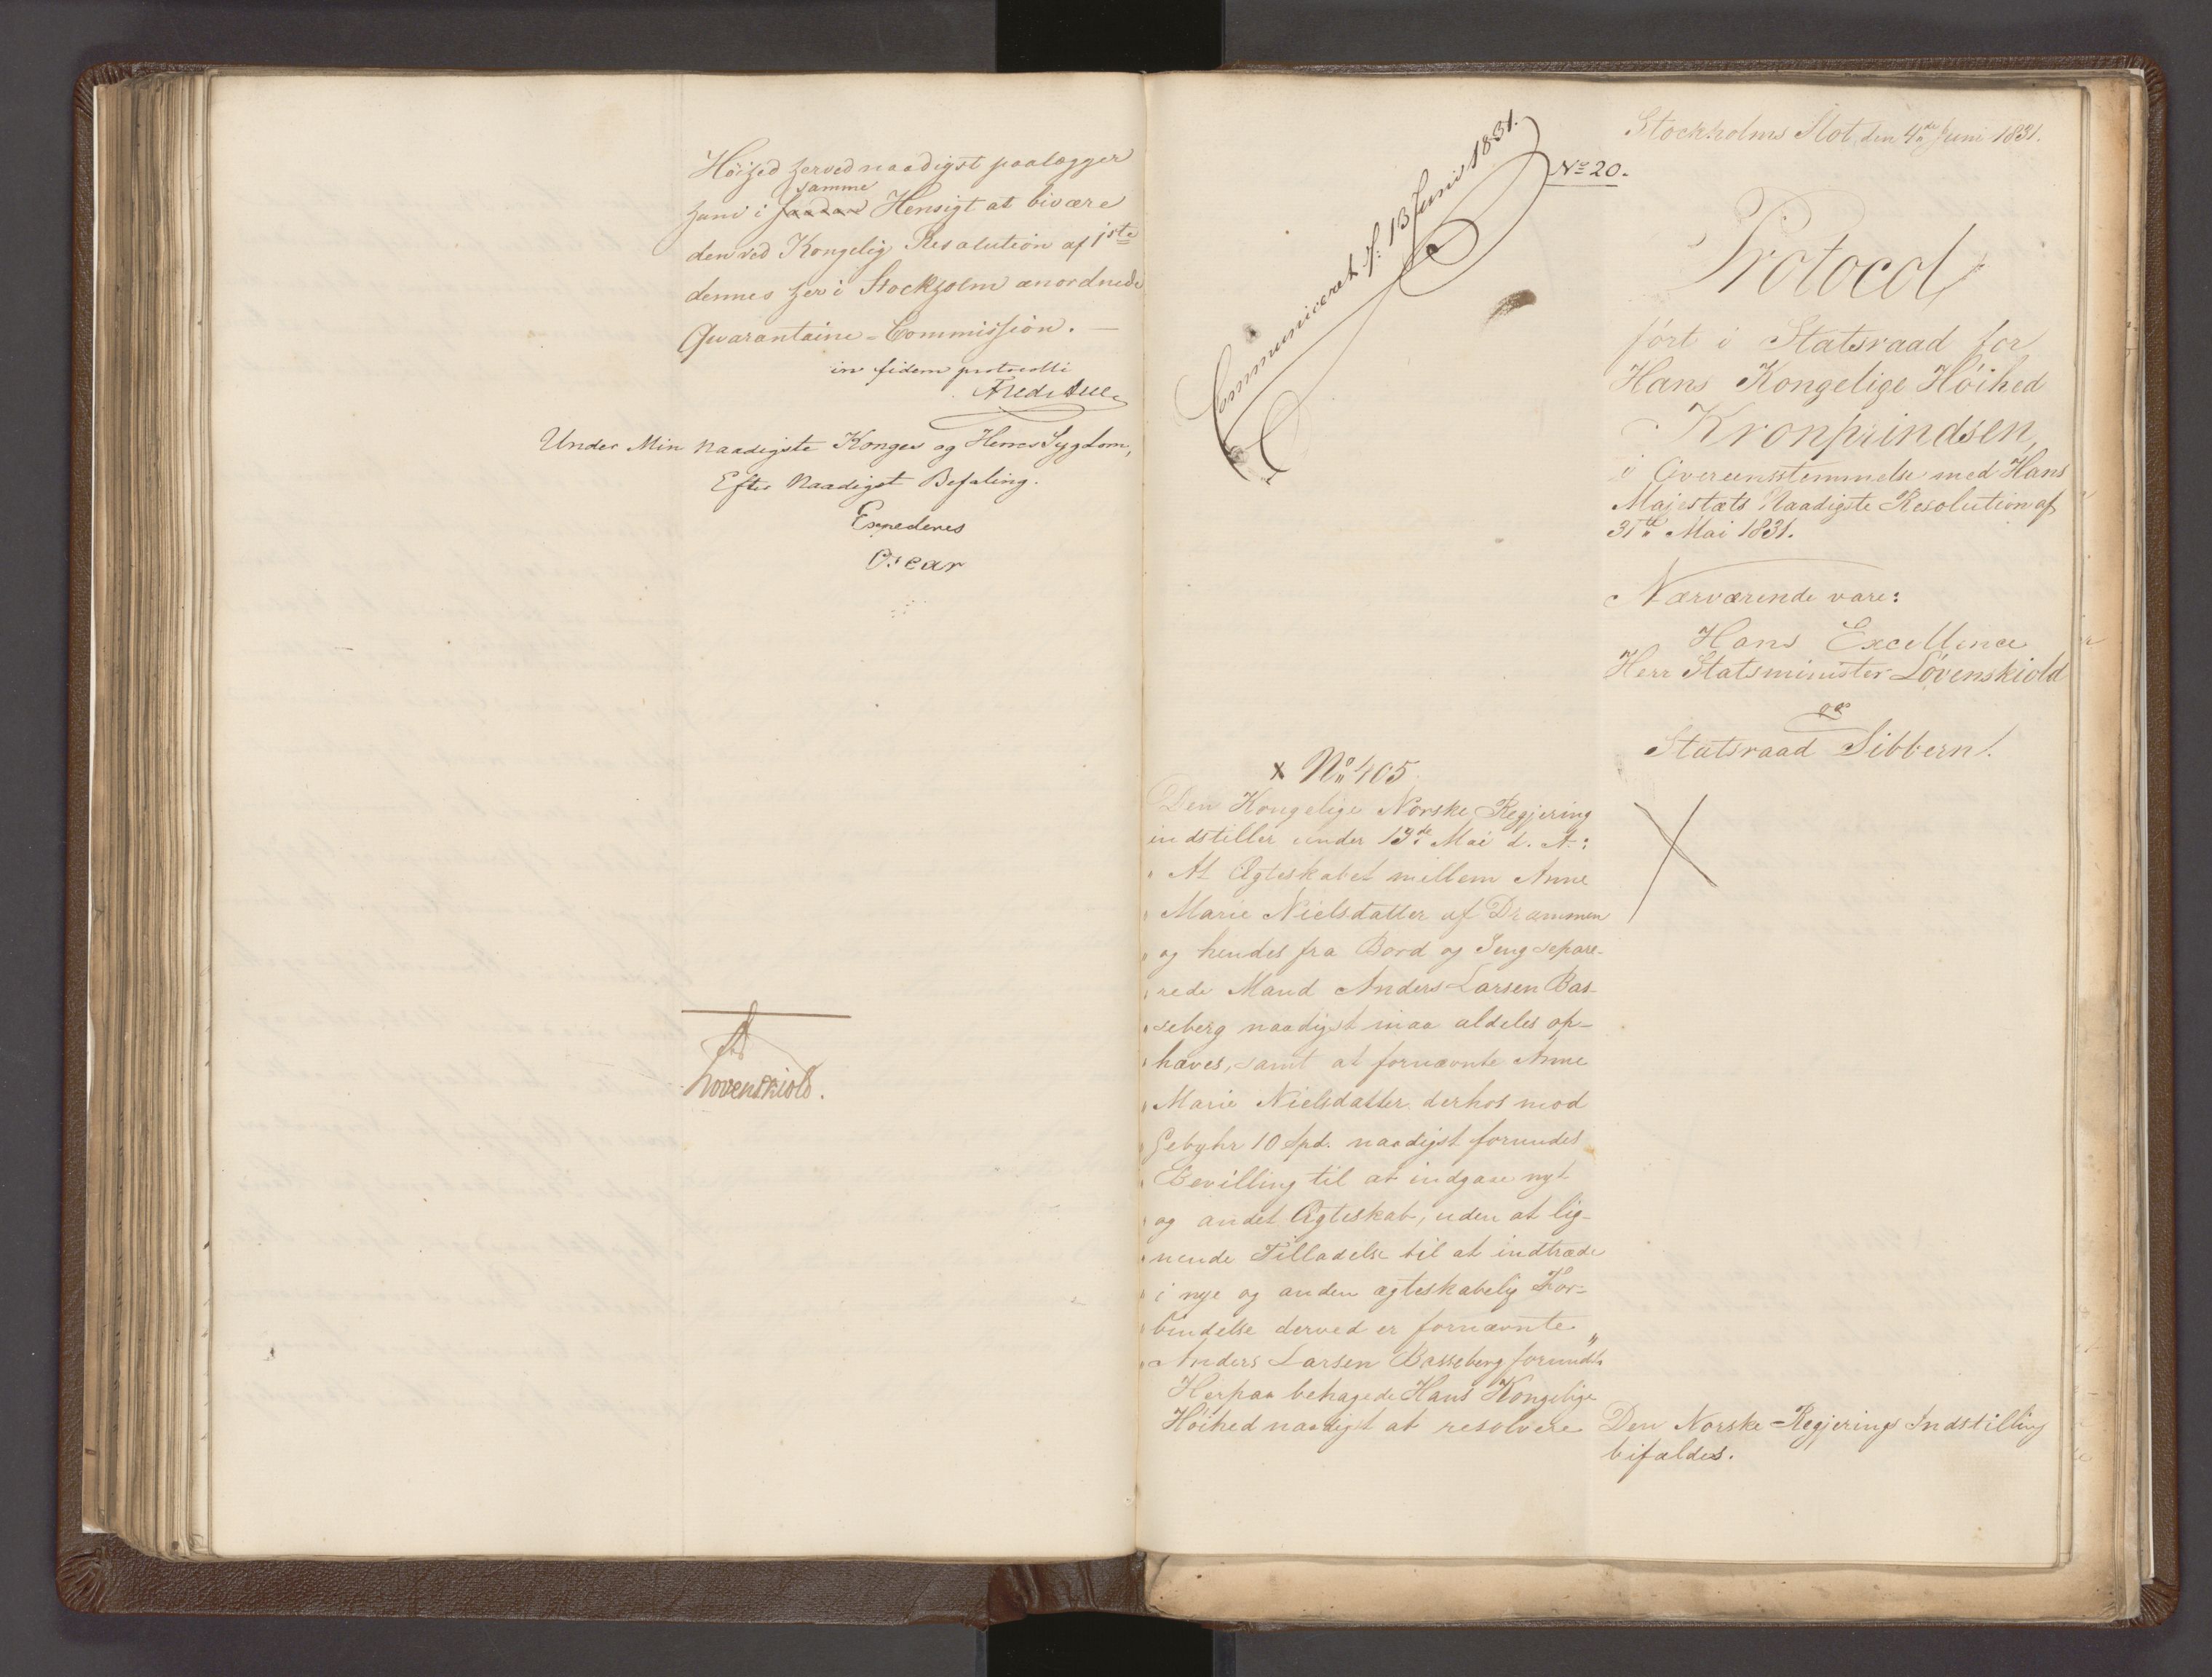 Höihed herved naadigst paalægger
samme
ham i saadan Hensigt at bivære
den ved Kongelig Resolution af 1ste
dennes her i Stockholm anordnede
Quarantaine-Commission. —
in fidem protocolli
Fredr Due
Under Min Naadigste Konges og Herres Sygdom,
Efter Naadigst Befaling.
Expederes
Oscar
Løvenskiold.
Communiceret d: 13 Junii 1831.
No 20.
Stockholms Slot, den 4de Juni 1831.
Protocol
fört i Statsraad for
Hans Kongelige Höihed
Kronprindsen,
i Overeensstemmelse med Hans
Majestæts Naadigste Resolution af
31te Mai 1831.
Nærværende vare:
Hans Excellence
Herr Statsminister Lövenskiold
og
Statsraad Sibbern.
x No 405.
Den Kongelige Norske Regjering
indstiller under 13de Mai d. A.:
" At Ægteskabet mellem Anne
" Marie Nielsdatter af Drammen
" og hendes fra Bord og Seng separe-
" rede Mand Anders Larsen Bas-
" seberg naadigst maa aldeles op-
" hæves, samt at fornævnte Anne
" Marie Nielsdatter derhos mod
" Gebyhr 10 Spd. naadigst forundes
" Bevilling til at indgaae nyt
" og andet Ægteskab, uden at lig-
" nende Tilladelse til at indtræde
" i nye og anden ægteskabelig For-
" bindelse derved er fornævnte
" Anders Larsen Basseberg forundt."
Herpaa behagede Hans Kongelige
Höihed naadigst at resolvere
Den Norske Regjerings Indstilling
bifaldes.